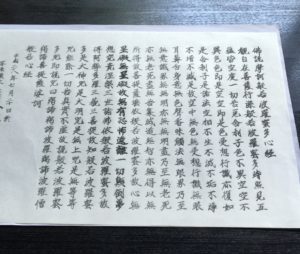 佛説摩訶般若波羅蜜多心經
觀自在菩薩行深般若波羅蜜多時照見五
蘊皆空度一切苦厄舎利子色不異空空不
異色色即是空空即是色受想行識亦復如
是舎利子是諸法空相不生不滅不垢不淨
不增不減是故空中無色無受想行識無眼
耳鼻舌身意無色聲香味觸法無眼界乃至
無意識界無無明亦無無明盡乃至無老死
亦無老死盡無苦集滅道無智亦無得以無
所得故菩提薩埵依般若波羅蜜多故心無
罣礙無罣礙故無有恐怖遠離一切顛倒夢
想究竟涅槃三世諸佛依般若波羅蜜多故
得阿耨多羅三藐三菩提故知般若波羅蜜
多是大神咒是大明咒是無上咒是無等等
咒能除一切苦真實不虛故説般若波羅蜜
多咒即説咒曰揭諦揭諦波羅揭諦波羅僧
揭諦菩提薩婆訶
般若心經